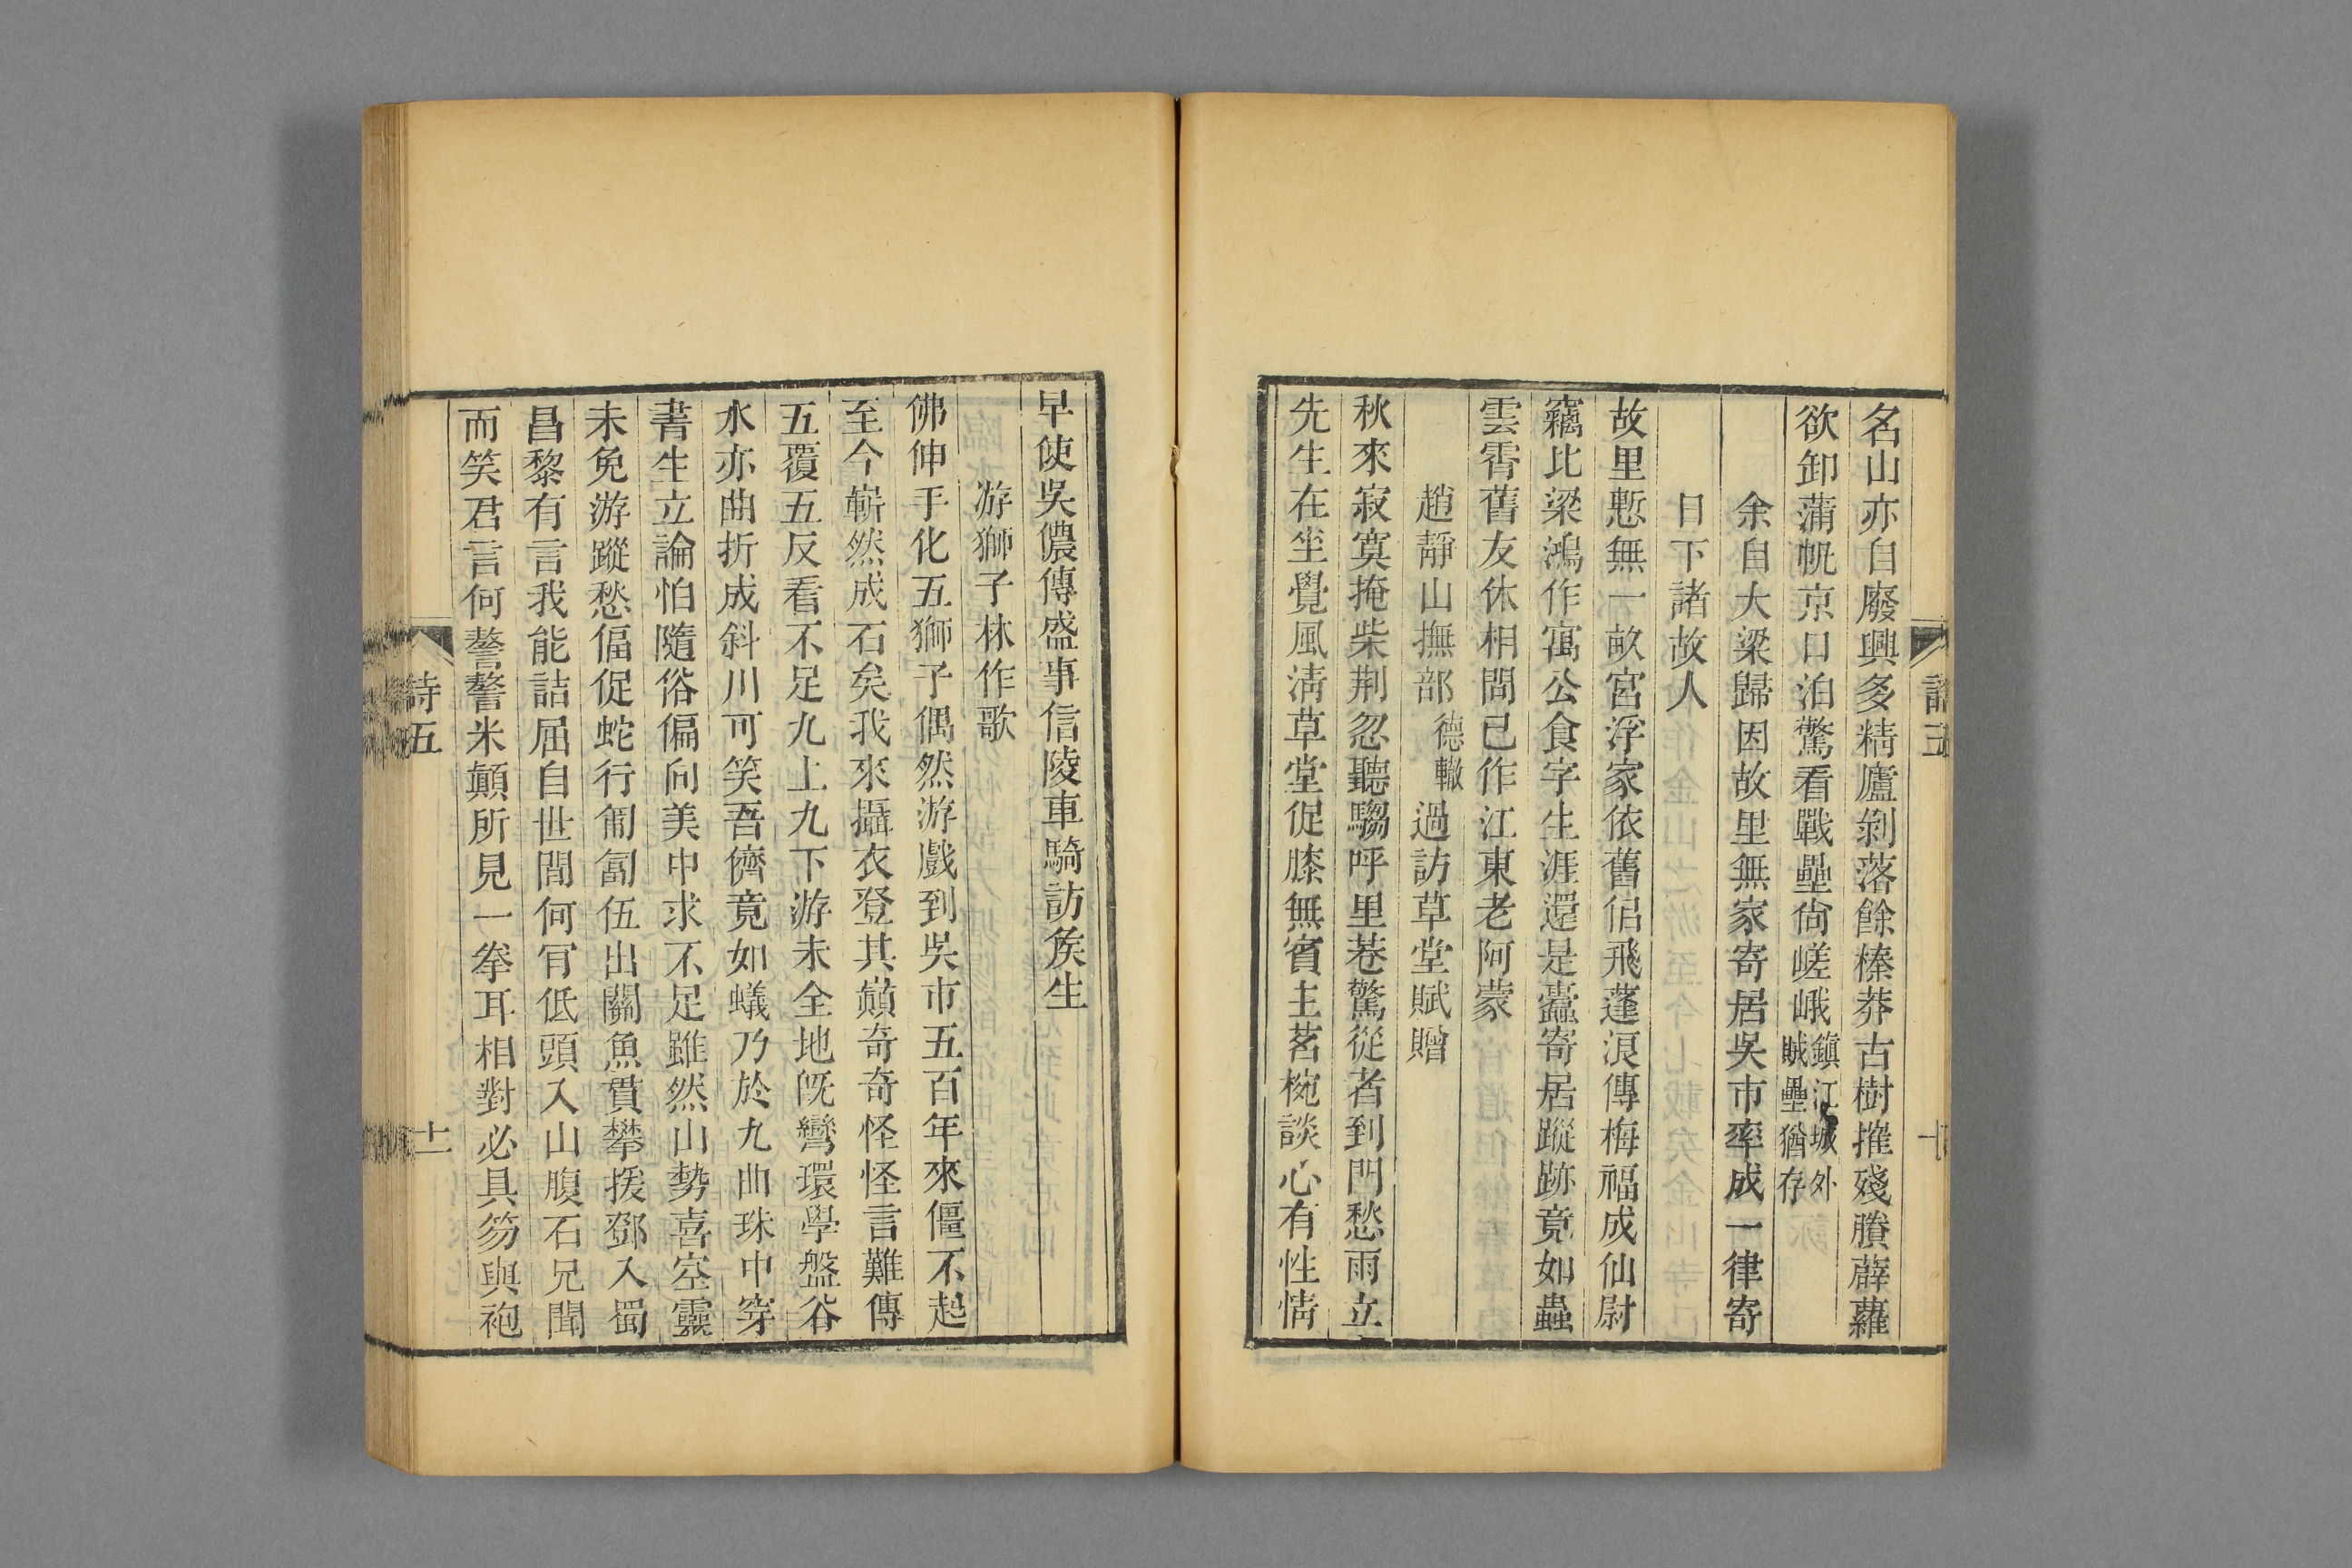 名山亦自廢興多精廬剝落餘榛莽古樹摧殘賸薜蘿
欲卸蒲帆京口泊驚看戰壘尙嵯峨鎭江城外賊壘猶存
余自大梁歸因故里無家寄居吳市率成一律寄
日下諸故人
故里慙無一畝宮浮家依舊侶飛蓬浪傳梅福成仙尉
竊比梁鴻作寓公食字生涯還是蠹寄居蹤跡竟如蟲
雲霄舊友休相問已作江東老阿蒙
趙靜山撫部德轍過訪草堂賦贈
秋來寂寞掩柴荆忽聽騶呼里巷驚從者到門愁雨立
先生在坐覺風淸草堂促膝無賓主茗椀談心有性情
早使吳儂傳盛事信陵車騎訪矦生
游獅子林作歌
佛伸手化五獅子偶然游戲到吳市五百年來僵不起
至今嶄然成石矣我來攝衣登其巔奇奇怪怪言難傳
五覆五反看不足九上九下游未全地旣彎環學盤谷
水亦曲折成斜川可笑吾儕竟如蟻乃於九曲珠中穿
書生立論怕隨俗偏向美中求不足雖然山勢喜空靈
未免游蹤愁偪促蛇行匍匐伍出關魚貫攀援鄧入蜀
昌黎有言我能詰屈自世閒何肎低頭入山腹石兄聞
而笑君言何謷謷米顚所見一拳耳相對必具笏與袍
詩五
十一